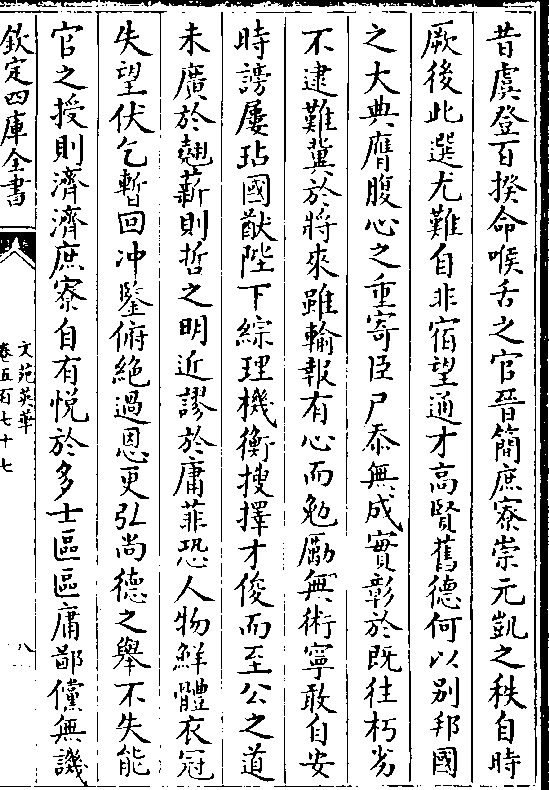 昔虞登百揆命喉舌之官晉簡庶寮崇元凱之秩自時
厥後此選尤難自非宿望通才高賢舊德何以别邦國
之大典膺腹心之重寄臣尸忝無成實彰於既往朽劣
不逮難冀於將來雖輸報有心而勉勵無術寧敢自安
時謗屢玷國猷陛下綜理機衡搜擇才俊而至公之道
未廣於翹薪則哲之明近謬於庸菲恐人物鮮體衣冠
失望伏乞暫回冲鑒俯絶過恩更弘尚德之舉不失能
官之授則濟濟庶寮自有悦於多士區區庸鄙儻無譏
欽定四庫全書
文苑英華
卷五百七十七
八